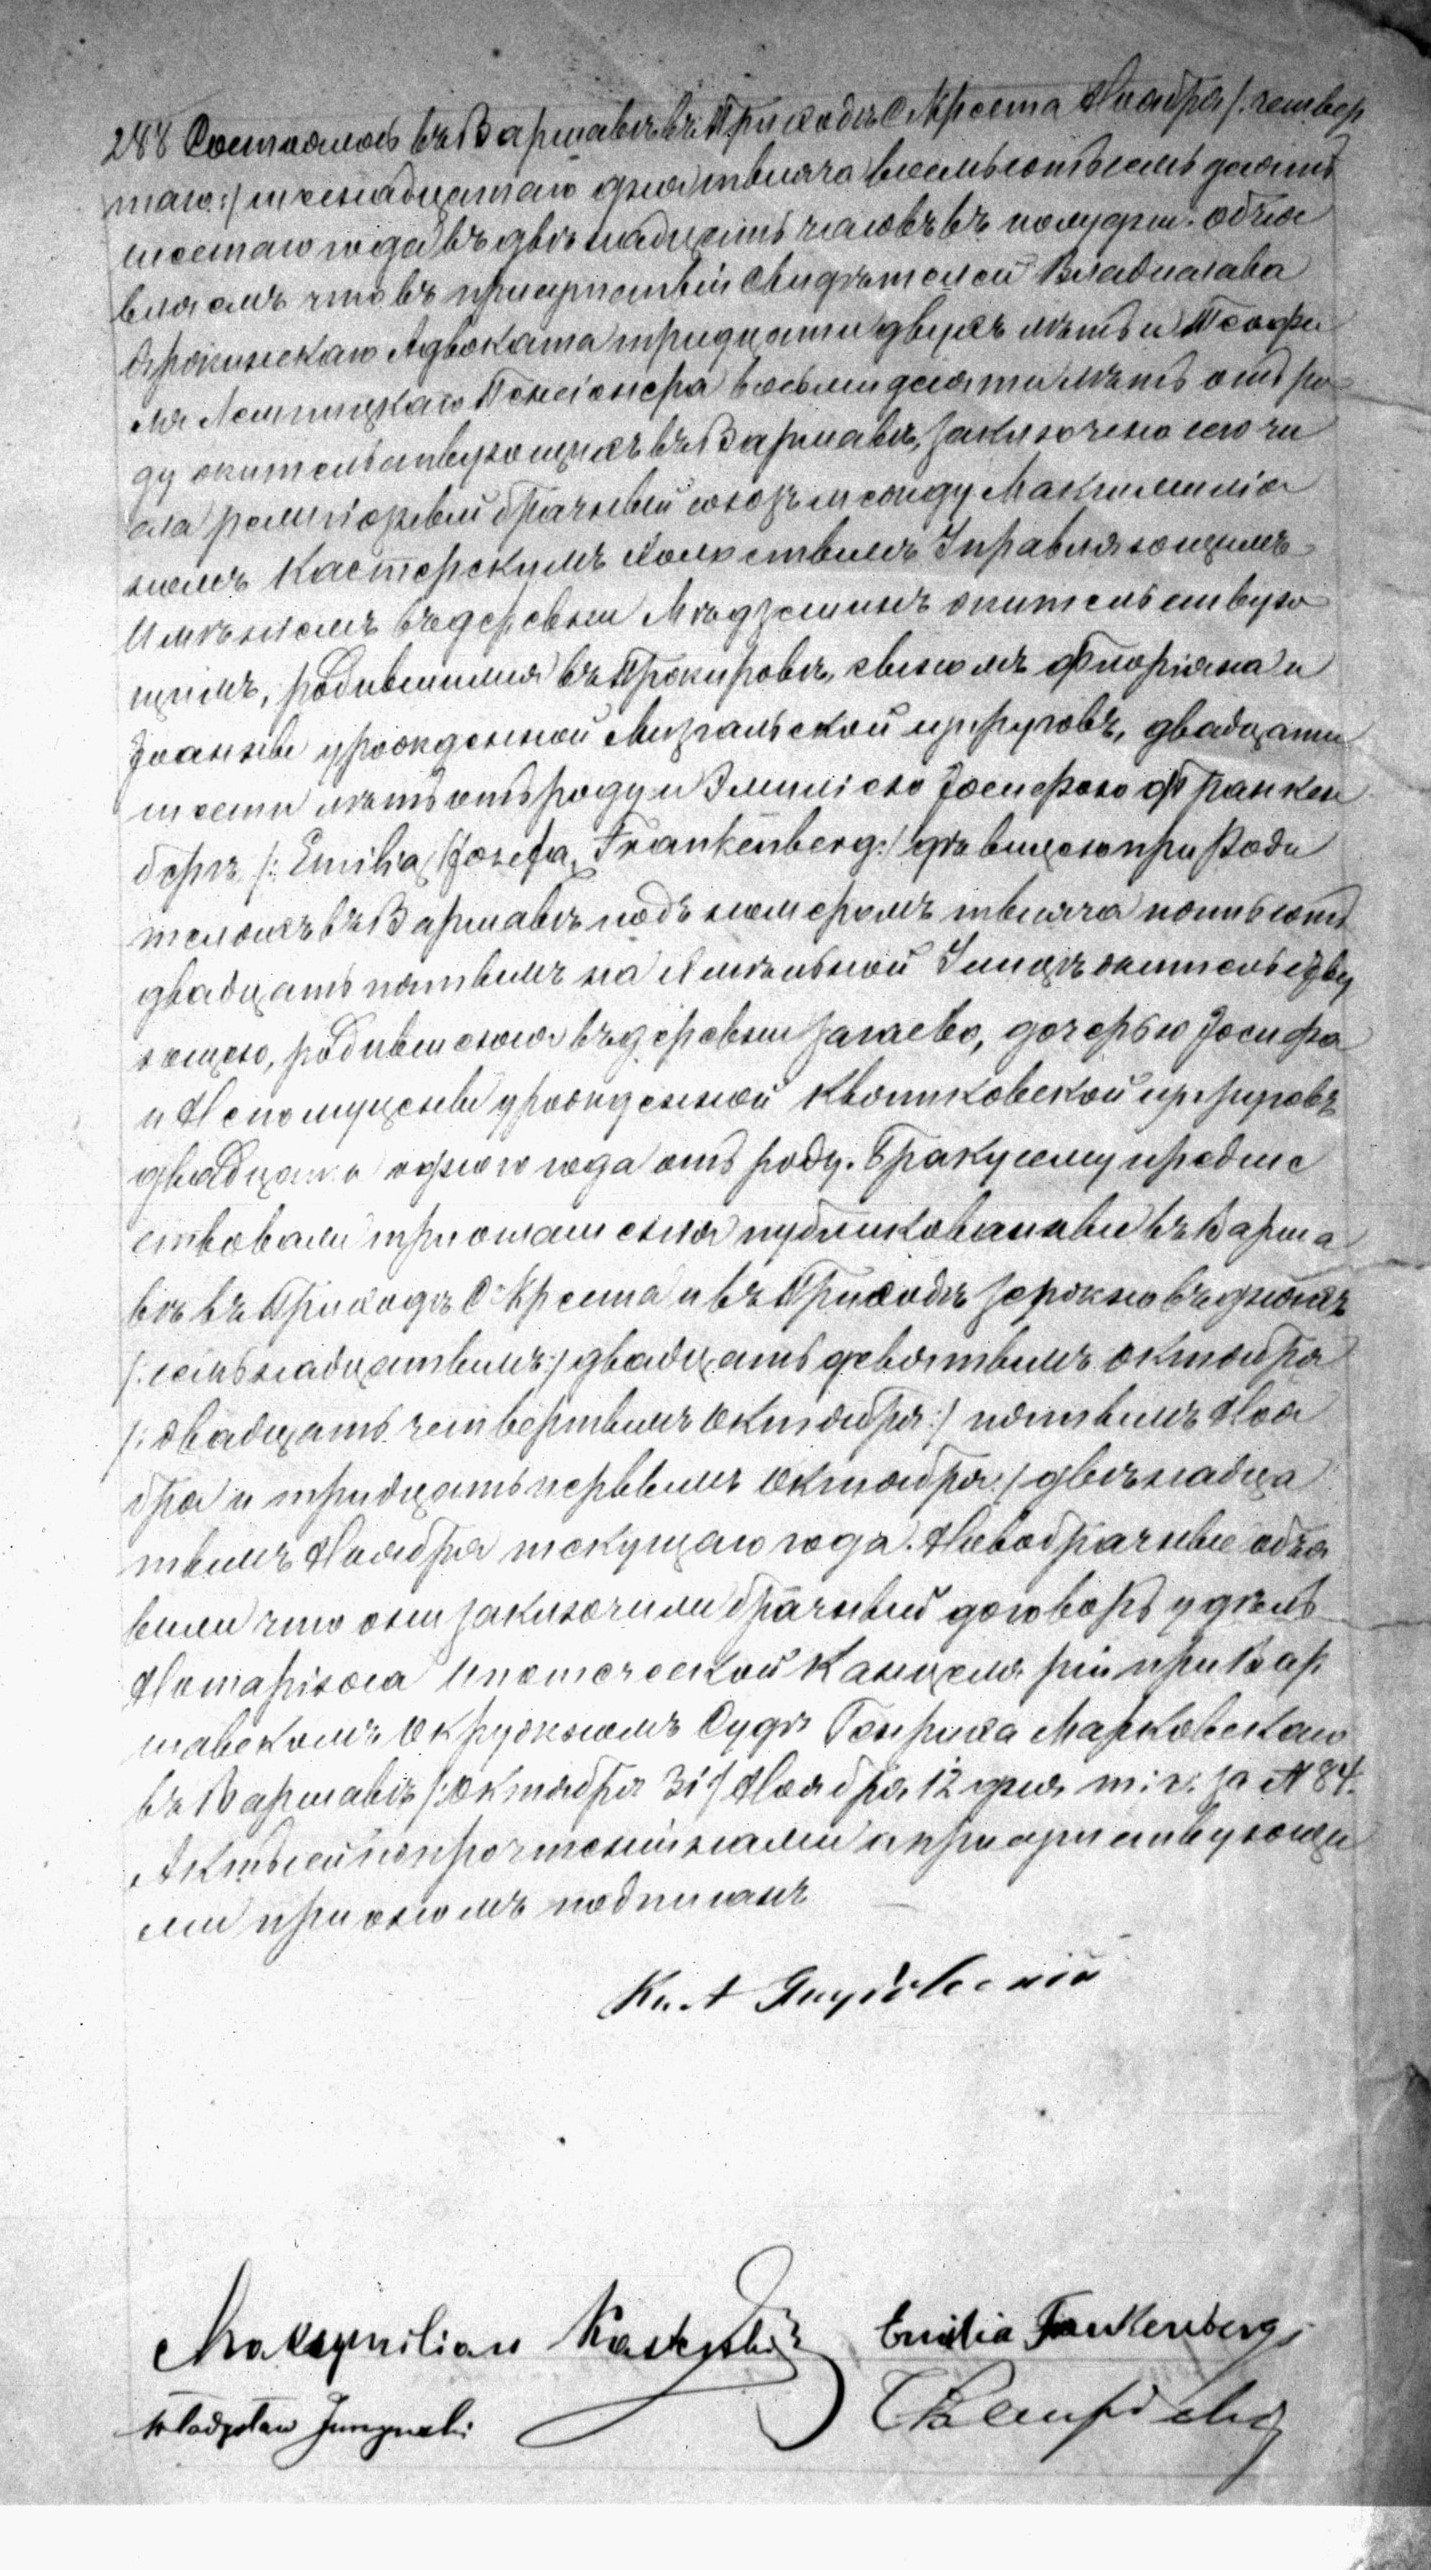 288 Состоялось въ Варшавѣ въ Приходѣ С Креста Ноября /: четвер
таго :/ шеснадцатаго дня тысяча восемьсотъ семь десятъ
шестаго года въ двѣнадцать часовъ въ полудни. Объя
вляемъ что въ присутствіи Свидѣтелей Владислава
Адвоката тридцати двухъ лѣтъ и Теофи
ля Пенсіонера восьмидесяти лѣтъ отъ ро
ду жительствующихъ въ Варшавѣ, заключено сего чи
сла религіозный брачный союзъ между Максимиліа
номъ Кастерскимъ Холостымъ Управляющимъ
Имѣніемъ въ деревни жительствую
щимъ, родившимся въ сыномъ Флоріяна и
Іоанны урожденной супруговъ, двадцати
шести лѣтъ отъ роду и Эмиліею Іосефою Франкен
бергъ /: Emilia Józefa Frankenberg :/ дѣвицею при Роди
теляхъ въ Варшавѣ подъ номеромъ тысяча пятьсотъ
двадцать пятымъ на Хмѣльной Улицѣ жительству
ющею, родившеюся въ деревни дочерью Іосифа
и Непомуцены урожденной Квятковской супруговъ
двадцати одного года отъ роду. Браку сему предше
ствовали три оглашенія публикованныи въ Варша
вѣ въ Приходѣ С Креста и въ Приходѣ въ дняхъ
/: семьнадцатымъ :/ двадцать девятымъ Октября
/: двадцать четвертымъ Октября :/ пятымъ Ноя
бря и тридцать первымъ Октября :/ двѣнадца
тымъ Ноября текущаго года. Новобрачные объя
вили что они заключили брачный договоръ у дѣлъ
Нотаріюса Ипотечеекой Канцеляріи при Вар
шавскомъ Окружномъ Судѣ Генриха Марковскаго
въ Варшавѣ /: Октября 31 :/ Ноября 12 дня т: г: за N 84.
Актъ сей по прочтеніи нами и присутствующи
ми при ономъ подписанъ
Кс. А
Maksymilian Kasterski Emilia Frankenberg
Władysław